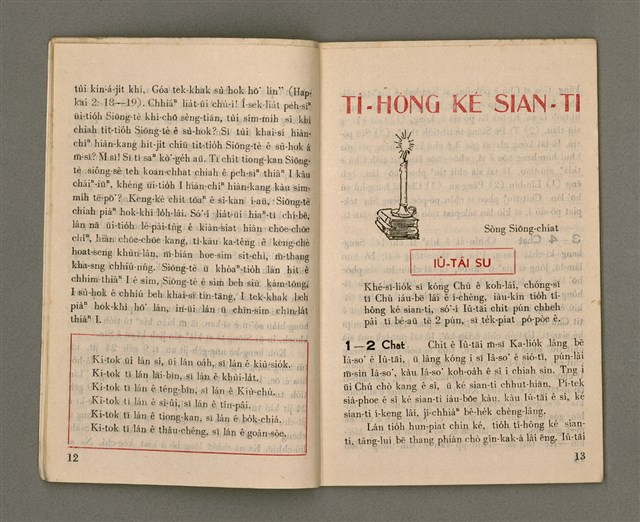 túi kin-á-jit khí, Góa tek-khak sù-hok hō͘ lín” (Hap-
kai 2: 18—19). Chhiáⁿ lia̍t-ūi chù-ì! Í-sek-lia̍t peh-sìⁿ
ūi-tio̍h Siōng-tè khí-chō sèng-tiān, túi sím-mih sî khí
chiah tit-tio̍h Siōng-tè ê sù-hok? Sī túi khai-sí hiàn-
chiⁿ hiàn-kang hit-jit chiū tit-tio̍h Siōng-tè ê sù-hok á
m̄-sī? M̄ sī! Sī tī saⁿ kò-ge̍h āu. Tī chit tiong-kan Siōng-
tè siông-sè teh koan-chhat chiah ê peh-sìⁿ thiàⁿ I kàu
chāi-iūⁿ, khéng ūi-tio̍h I hiàn-chiⁿ hiàn-kang kàu sím-
mih tē-pō͘? Keng-kè chit tōaⁿ ê sî-kan í-āu, Siōng-tè
chiah piàⁿ hok-khì lo̍h-lâi. Só͘-í lia̍t-ūi hiaⁿ-tī chí-bē,
lán nā ūi-tio̍h lé-pài-tn̂g ê kiàn-siat hiàn chōe-chōe
chîⁿ, hiàn chōe-chōe kang, tì-kàu ka-têng ê keng-chè
hoat-seng khùn-lân, m̄-bián hoe-sim sit-chì, m̄-thang
kha-sng chhiú-nńg. Siōng-tè ū khòaⁿ-tio̍h lán hit ê
chhim-thiàⁿ I ê sim, Siōng-tè ê sim beh siū kám-tōng,
I sù-hok ê chhiú beh khai-sí tín-tāng, I tek-khak beh
piàⁿ hok-khì hō͘ lán, in-ūi lán ū chin-sim chīn-la̍t
thiàⁿ I.
Ki-tok ūi lán sí, ūi lán oa̍h, sī lán ê kiù-sio̍k.
Ki-tok tī lán lāi-bīn, sī lán ê khùi-la̍t.
Ki-tok tī lán ê téng-bīn, sī lán ê Kiù-chú.
Ki-tok tī lán ê sì-ûi, sī lán ê tîn-pâi.
Ki-tok tī lán ê tiong-kan, sī lán ê bo̍k-chiá.
Ki-tok tī lán ê thâu-chêng, sī lán ê goân-sòe.
12
TÎ-HÔNG KÉ SIAN-TI
Sòng Siōng-chiat
IÛ-TĀI SU
Khé-sī-lio̍k sī kóng Chú ê koh-lâi, chóng-sī
tī Chú iáu-bē lâi ê í-chêng, iàu-kín tio̍h tî-
hông ké sian-ti, só͘-í Iû-tāi chit pún chheh
pâi tī bé-āu tē 2 pún, sī te̍k-pia̍t pó-pòe ê.
1—2 Chat Chit ê Iû-tāi m̄-sī Ka-lio̍k lâng bē
Iâ-so͘ ê Iû-tāi, ū lâng kóng i sī Iâ-so͘ ê sió-tī, pún-lâi
m̄-sìn Iâ-so͘, kàu Iâ-so͘ koh-oa̍h ê sî i chiah sìn. Tng i
ūi Chú chò kang ê sî, ū ké sian-ti chhut-hiān. Pí-tek
siá-phoe ê sî ké sian-ti iáu-bōe kàu. kàu Iû-tāi ê sî, ké
sian-ti í-keng lâi, jî-chhiáⁿ bê-he̍k chèng-lâng.
Lán tio̍h hun-piat chin ké, tio̍h tî-hông ké sian-
ti, tâng-lui bē thang phiàn chò gín-kak-á lâi ēng, Iû-tāi
13